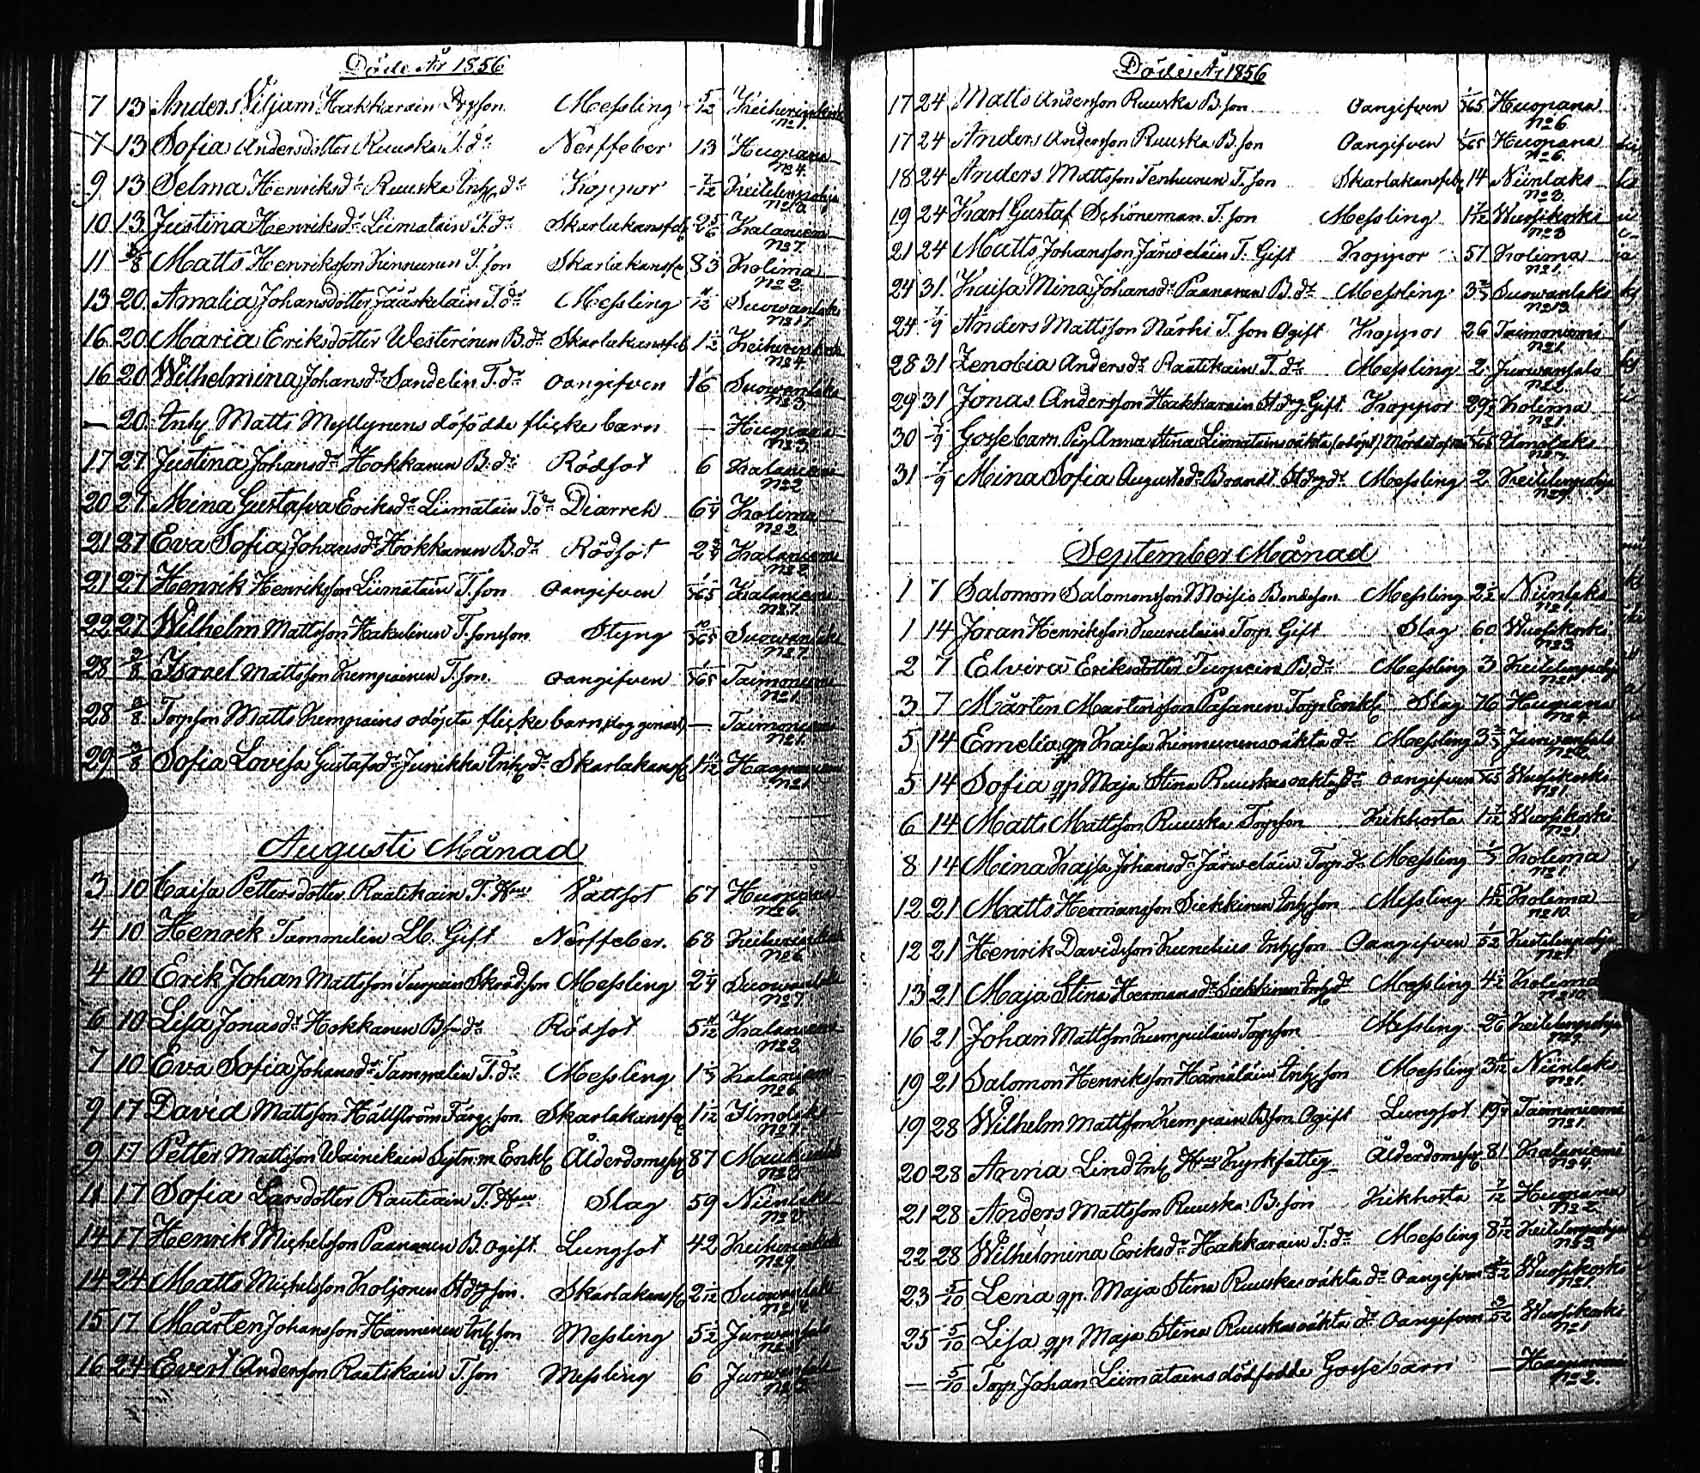 Döde År 1856
7 13 Anders Viljam Hakkarain Drgson Messling 5/12 No 1.
7 13 Sofia Andersdotter Ruuska T.dr Nerffeber 13 Huopana No 4.
9 13 Selma Henriksdr Ruuska Inhs dr Koppor 7/12 Keitelenpohja
10 13 Justina Henriksdr Liimatain T.dr Skarlakansfeb 2 5/6 Kalaniemi No 7.
11 3/8 Matts Henriksson Kinnunen T.son Skarlakansfe 8 1/3 Kolima No 2.
13 20 Amalia Johansdotter Jääskeläin T.dr Messling 11/12 Suowanlaks No 17.
16 20 Maria Eriksdotter Westerinen B.dr Skarlakansfeb 1 1/2 No 4.
16 20 Wilhelmina Johansdr Sandelin T.dr oangifven 1 1/6 Suowanlaks No 3.
— 20 Inhs Matts Myllynens döfödde flicke barn — Huopana No 3.
17 27 Justina Johansdr Hokkanen B.dr Rödsot 6 Kalaniemi No 2
20 27 Mina Gustafva Eriksdr Liimatain T.dr Diarreh 6 1/4 Kolima No 2.
21 27 Eva Sofia Johansdr Hokkanen B.dr Rödsot 2 3/4 Kalaniemi No 2
21 27 Henrik Henriksson Liimatain T.son oangifven 1/365 Kalaniemi No 7.
22 27 Wilhelm Mattsson Hakulinen T.sonson Styng 10/365 Suowanlaks No 7.
28 3/8 Israel Mattsson Kempainen T.son oangifven 1/365 Taimoniemi No 1.
28 3/8 Torpson Matts Kempains odöpta flicke barn — Taimoniemi No 1.
29 3/8 Sofia Lovisa Gustafsdr Junikka Inhs dr Skarlakansfe 1 11/12 Haapaniemi No 1
Augusti Månad
3 10 Caisa Pettersdotter Raatikain T. Hust Vattsot 67 Huopana No 6.
4 10 Henrek Tammelin Lb. Gift Nerffeber. 68 No 6.
4 10 Erik Johan Mattsson Turpein Skräd.son Messling 2 1/4 Suowanlaks No 7.
6 10 Lisa Jonasdr Hokkanen B dr Rödsot 5 11/12 Kalaniemi No 2.
7 10 Eva Sofia Johansdr Tammelin T.dr Messling 1 1/3 Kalaniemi No 6.
9 17 David Mattsson Hällström Färg.son Skarlakansfe 1 1/12 Ilmolaks No 1.
9 17 Petter Mattsson Wainikain Sytn:m Enkl Ålderdomssv 87
11 17 Sofia Larsdotter Rautiain T. Hust Slag 59 Niinilaks
14 17 Henrik Michelsson Paananen B. ogift Lungsot 42 No 9.
14 24 Matts Michelsson Koljonen St drg son. Skarlakansfe 2 1/12 Suowanlaks No 14.
15 17 Mårten Johansson Hänninen Inhs son Messling 5 1/2 Jurwansalo
16 24 Evert Andersson Raatikain T.son Messling 6 Jurwansalo
Döde År 1856
17 24 Matts Andersson Ruuska B.son Oangifven 1/365 Huopana No 6
17 24 Anders Andersson Ruuska B.son Oangifven 1/365 Huopana No 6.
18 24 Anders Mattsson Tenhunen T.son Skarlakansfeb 14 Niinlaks No 3.
19 24 Karl Gustaf Schöneman T.son Messling 1 7/12 Wuosikoski No 3
21 24 Matts Johansson Järweläin T. Gift Koppor 51 Kolima No 1.
24 31. Kaisa Mina Johansdr Paananen B.dr Messling Suowanlaks No 13.
24 7/9 Anders Mattsson Närhi T.son ogift Koppor 26 Taimoniemi No 1.
28 31 Zenobia Andersdr Raatikain T.dr Messling 2. Jurwansalo No 2.
29 31 Jonas Andersson Hakkarain St drg Gift Koppor 29 Kolima No 1.
30 7/9 Gossebarn Pig Anna Stina Liimatains oäkta (odöpt) 1/365 Ilmolaks
31 7/9 Mina Sofia Augustsdr Brandt St drg dr Messling 2 Keitelenpohja
September Månad
1 7 Salomon Salomonsson Moisio Bondeson Messling 2 1/2 Niinlaks No 1.
1 14 Joran Henriksson Torp. Gift Slag 60 Wuosikoski No 3.
2 7 Elvira Eriksdotter Turpein B.dr Messling 3 Keitelenpohja
3 7 Mårten Mårtensson Pasanen Torp Enkl Slag 76 Huopana No 4.
5 14 Emelia qp Kaisa Kinnunens oäkta dr Messling Jurwansalo
5 14 Sofia qp Maja Stina Ruuskas oäkta dr oangifven Wuosikoski No 1.
6 14 Matts Mattsson Ruuska Torpson Kikhosta 1 7/12 Wuosikoski No 1.
8 14 Mina Kajsa Johansdr Järweläin Torp.dr Messling 1/3 Kolima No 1.
12 21 Matts Hermansson Siekkinen Inhs son Messling 1 5/12 Kolima No 10.
12 21 Henrik Davidsson Kunelius Inhs son Oangifven 1/52 Keitelenpohja No 1.
13 21 Maja Stina Hermansdr Siekkinen Inhs dr Messling 4 1/2 Kolima No 10.
16 21 Johan Mattsson Kumpulain Torpson Messling Keitelenpohja
19 21 Salomon Henriksson Hämäläin Inhs son Messling Niinlaks No 1.
19 28 Wilhelm Mattsson Kempain B.son Ogift Lungsot 19 Taimoniemi No 1.
20 28 Anna Lind Inhs Hust Kyrkfattig Ålderdomssv 81 Kalaniemi No 4.
21 28 Anders Mattsson Ruuska B.son Kikhosta 7/12 Huopana No 2.
22 28 Wilhelmina Eriksdr Hakkarain T.dr Messling 8 Keitelenpohja No 3.
23 5/10 Lena qp. Maja Stina Ruuskas oäkta dr oangifven Wuosikoski No 1.
25 5/10 Lisa qp Maja Stina Ruuskas oäkta dr oangifven 3/52 Wuosikoski No 1
— 5/10 Torp. Johan Liimatains dödfödde Gossebarn — Haapaniemi No 2.